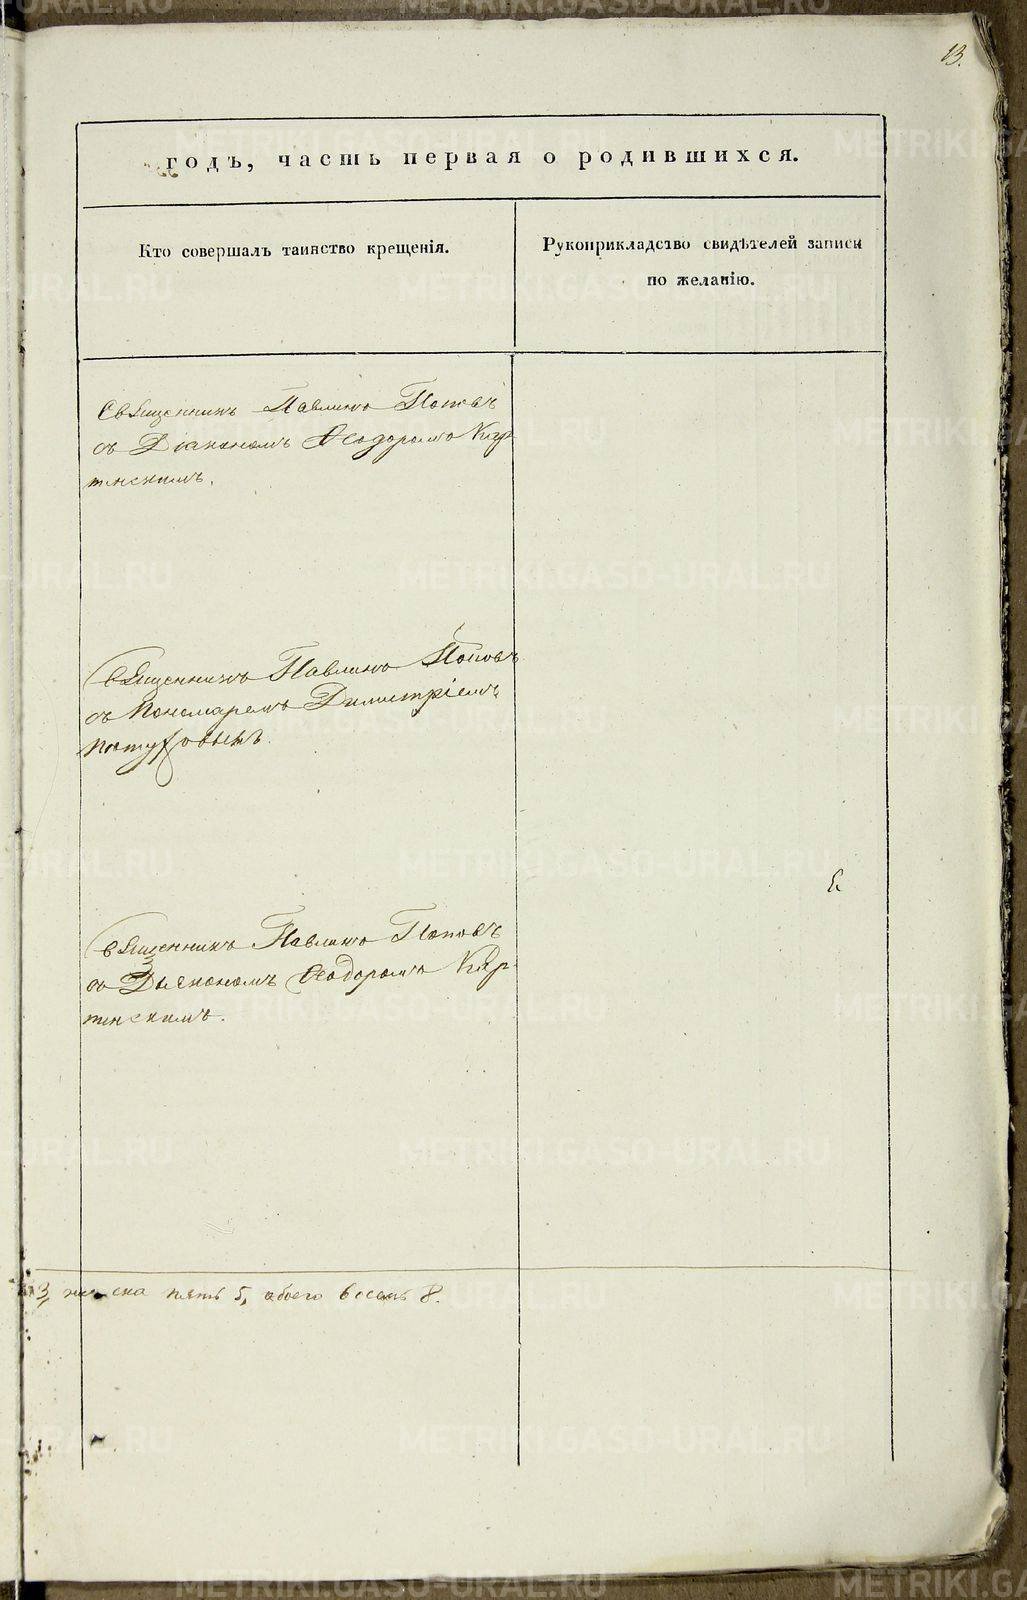 13.
годъ, часть первая о родившихся.
Кто совершалъ таинство крещенія.
Рукоприкладство свидѣтелей записи
по желанію.
Священникъ Павлинъ Поповъ
съ Діакономъ Ѳеодоромъ
Священникъ Павлинъ Поповъ
съ Пономаремъ Димитріемъ
Священникъ Павлинъ Поповъ
съ Діакономъ Ѳеодоромъ
3, женска пять 5, обоего восемь 8.
METRIKI.GASO-URAL.RU